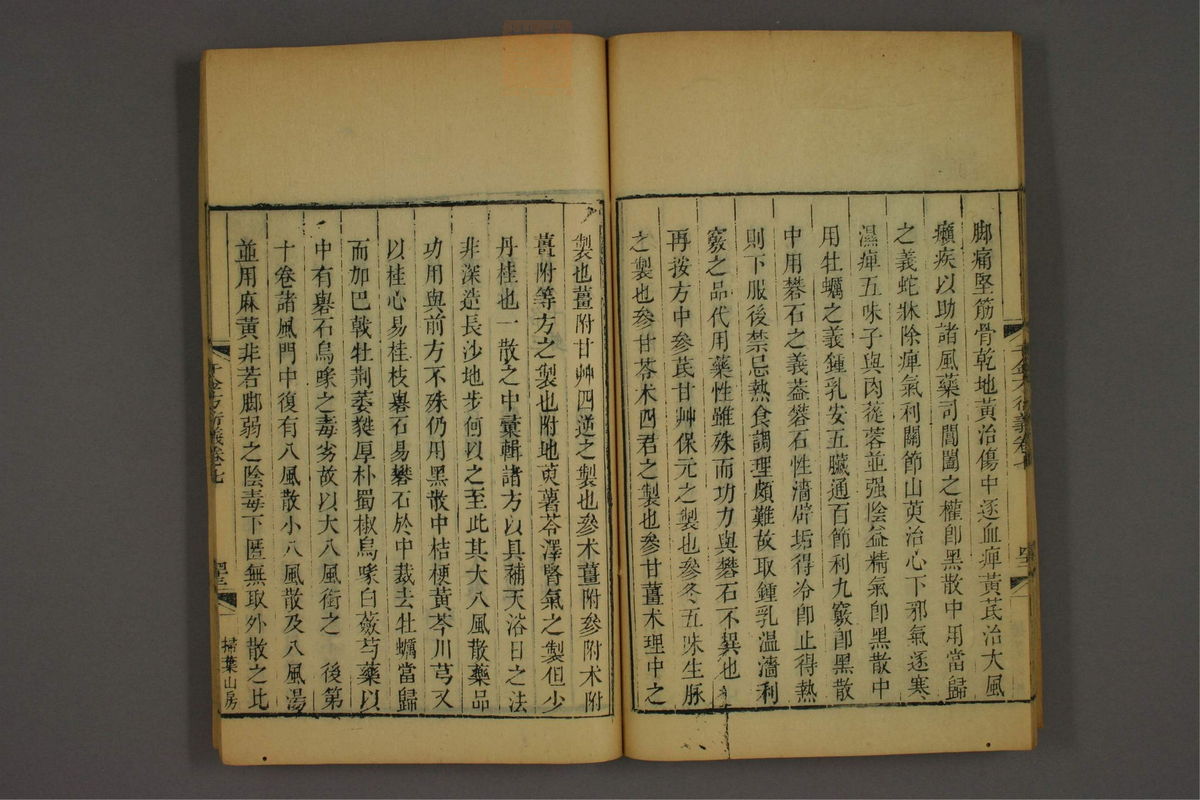 脚痛堅筋骨乾地黃治傷中逐血痺黃芪治大風
癩疾以助諸風藥司開闔之權卽黑散中用當歸
之義蛇牀除痺氣利關節山萸治心下邪氣逐寒
濕痺五味子與肉蓯蓉並强陰益精氣卽黑散中
用牡蠣之義鍾乳安五臟通百節利九竅卽黑散
中用礬石之義葢礬石性濇辟垢得冷卽止得熱
則下服後禁忌熱食調理頗難故取鍾乳温濇利
竅之品代用藥性雖殊而功力與礬石不異也
再按方中參芪甘艸保元之製也參冬五味生脈
之製也參甘苓术四君之製也參甘薑术理中之
千金方衍義卷七
製也薑附甘艸四逆之製也參术薑附參附术附
薑附等方之製也附地萸薯苓澤腎氣之製但少
丹桂也一散之中彙輯諸方以具補天浴日之法
非深造長沙地步何以之至此其大八風散藥品
功用與前方不殊仍用黑散中桔梗黃芩川芎又
以桂心易桂枝礜石易礬石於中裁去牡蠣當歸
而加巴戟牡荆萎蕤厚朴蜀椒烏喙白蘞芍藥以
中有礜石烏喙之毒劣故以大八風銜之 後第
十卷諸風門中復有八風散小八風散及八風湯
並用麻黃非若脚弱之陰毒下匿無取外散之比
千金方衍義卷七
掃葉山房